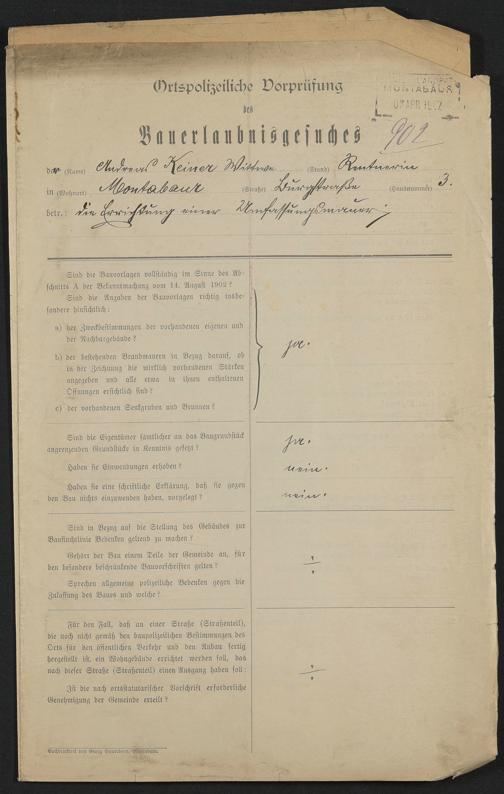 Ortspolizeiliche Vorprüfung
des
MONTABAUR
Bauerlaubnisgesuches
902
der (Name) Andreas Keiner Wittwe (Stand) Rentnerin
in (Wohnort) Montabaur (Straße) Burgstraße (Hausnummer) 3.
betr.: die Errichtung einer Umfassungsmauer
Sind die Bauvorlagen vollständig im Sinne des Ab-
schnitts A der Bekanntmachung vom 14. August 1902?
Sind die Angaben der Bauvorlagen richtig insbe-
sondere hinsichtlich:
a) der Zweckbestimmungen der vorhandenen eigenen und
der Nachbargebäude?
ja.
b) der bestehenden Brandmauern in Bezug darauf, ob
in der Zeichnung die wirklich vorhandenen Stärken
angegeben und alle etwa in ihnen enthaltenen
Öffnungen ersichtlich sind?
c) der vorhandenen Senkgruben und Brunnen?
Sind die Eigentümer sämtlicher an das Baugrundstück
angrenzenden Grundstücke in Kenntnis gesetzt? ja.
Haben sie Einwendungen erhoben? nein.
Haben sie eine schriftliche Erklärung, daß sie gegen
den Bau nichts einzuwenden haben, vorgelegt? nein.
Sind in Bezug auf die Stellung des Gebäudes zur
Baufluchtlinie Bedenken geltend zu machen?
Gehört der Bau einem Teile der Gemeinde an, für
den besondere beschränkende Bauvorschriften gelten?
Sprechen allgemeine polizeiliche Bedenken gegen die
Zulassung des Baues und welche?
Für den Fall, daß an einer Straße (Straßenteil),
die noch nicht gemäß den baupolizeilichen Bestimmungen des
Orts für den öffentlichen Verkehr und den Anbau fertig
hergestellt ist, ein Wohngebäude errichtet werden soll, das
nach dieser Straße (Straßenteil) einen Ausgang haben soll:
Ist die nach ortsstatutarischer Vorschrift erforderliche
Genehmigung der Gemeinde erteilt?